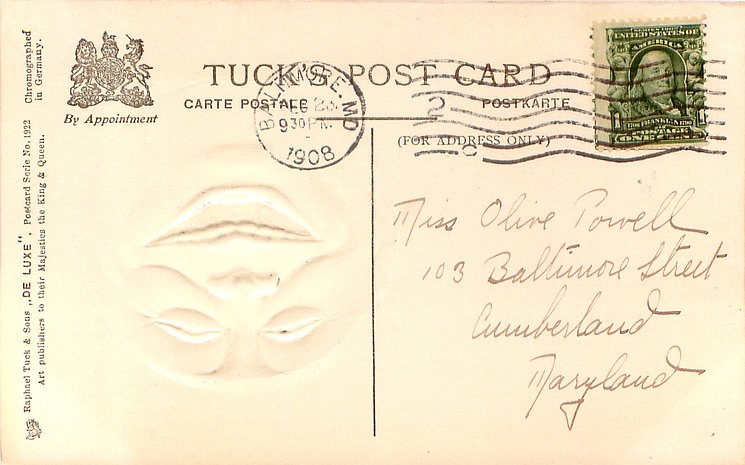 Raphael Tuck & Sons „DE LUXE“, Postcard Serie No. 1922 Chromographed
Art publishers to their Majesties the King & Queen. in Germany.
By Appointment
TUCK'S POST CARD
CARTE POSTALE POSTKARTE
(FOR ADDRESS ONLY)
BALTIMORE, MD
FEB 23
9 30 PM
1908
2
C
SERIES 1902
UNITED STATES OF
AMERICA
1 1
Miss Olive Powell
103 Baltimore Street
Cumberland
Maryland